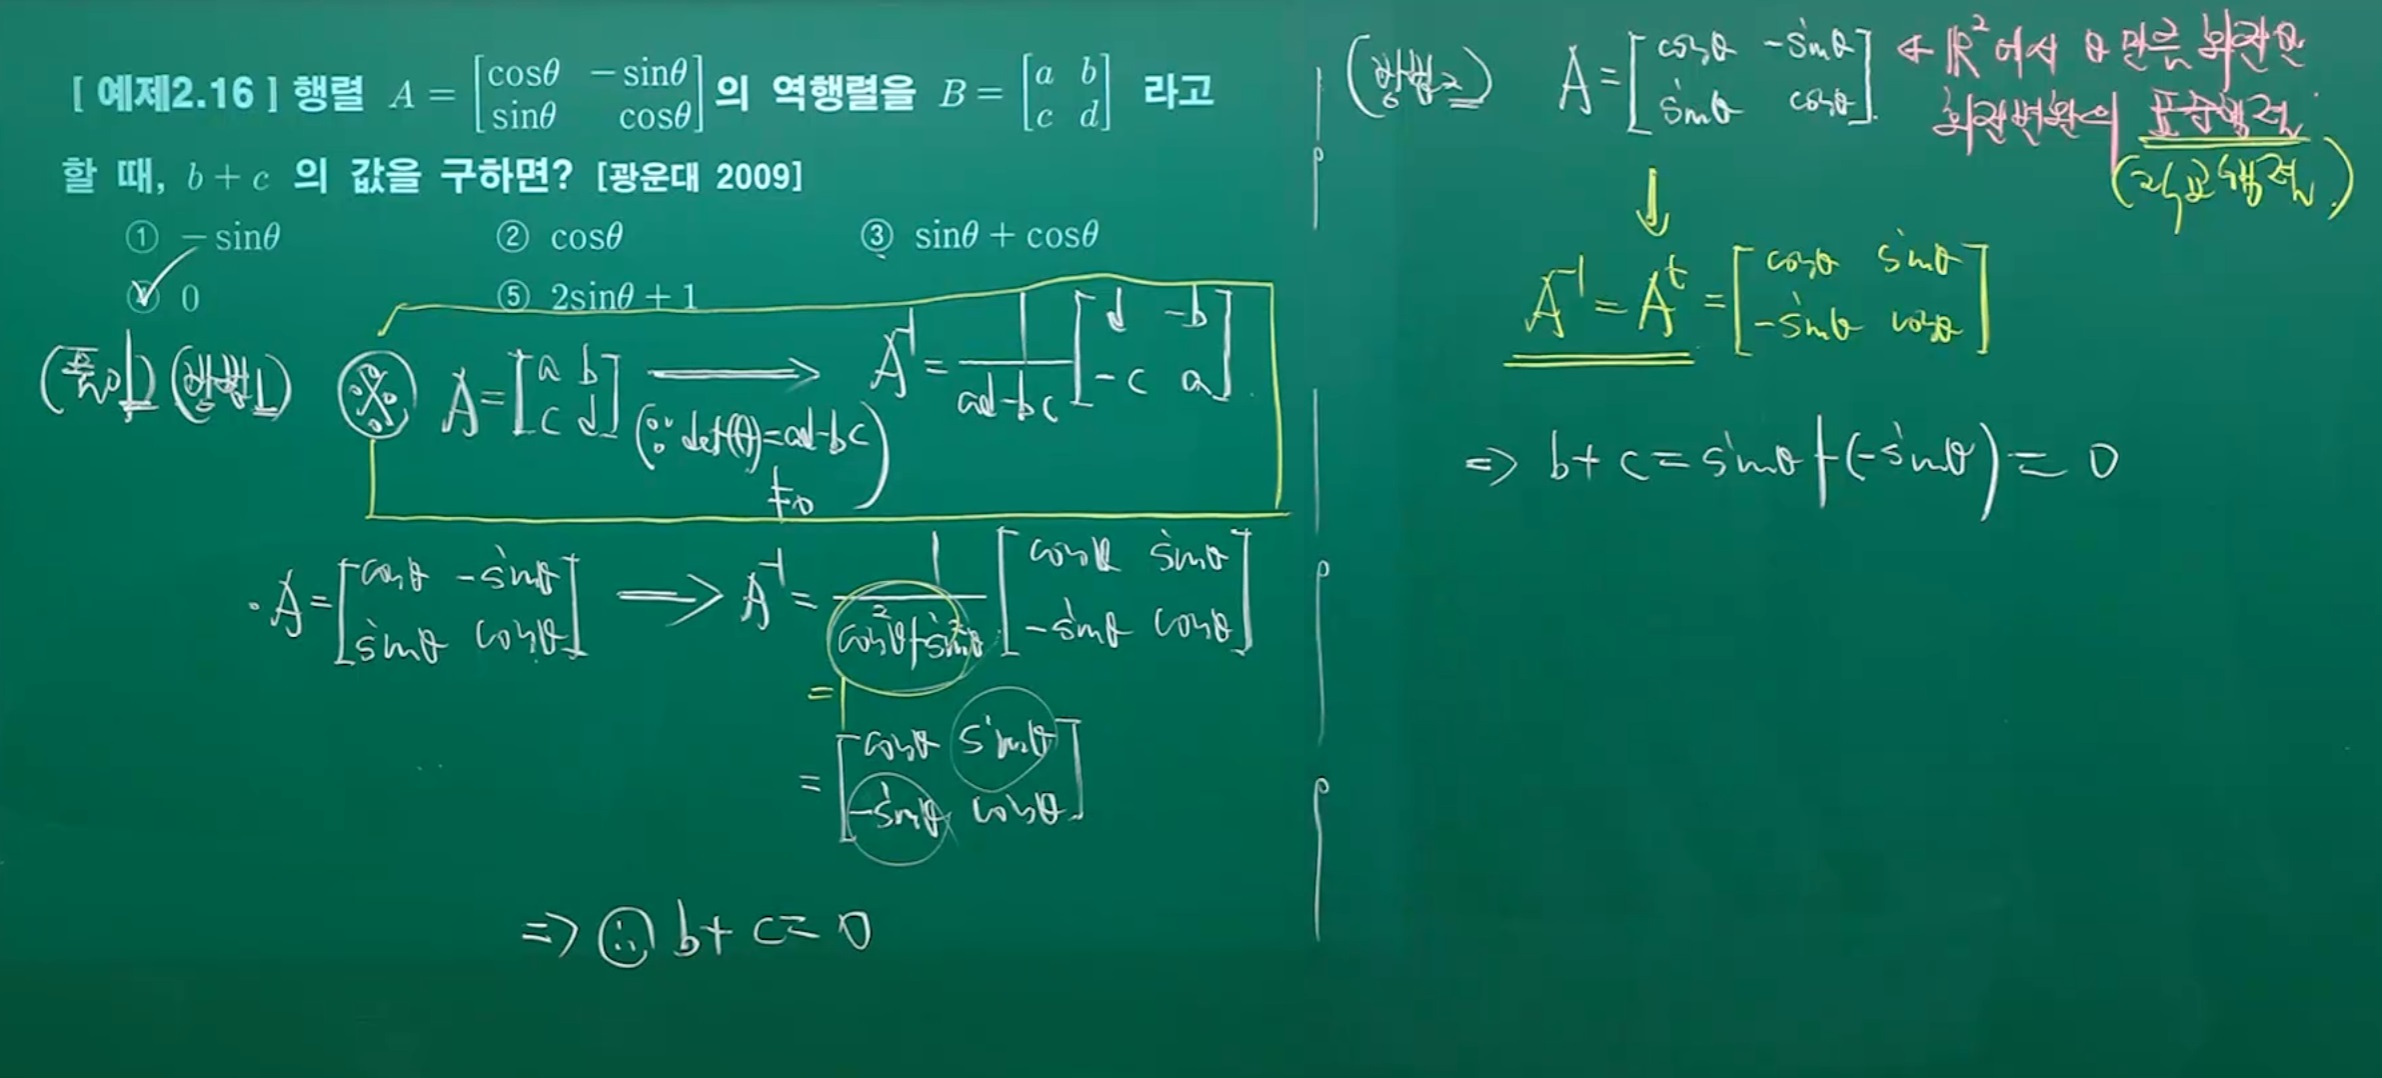 [ 예제2.16 ] 행렬 A = [cosθ −sinθ; sinθ cosθ] 의 역행렬을 B = [a b; c d] 라고
할 때, b + c 의 값을 구하면? [광운대 2009]
① − sinθ ② cosθ ③ sinθ + cosθ
④ 0 ⑤ 2sinθ + 1
(풀이) (방법1) ※ A = [a b; c d] ⟶ A⁻¹ = 1/(ad-bc) [d -b; -c a]
(∵ det(A) = ad-bc ≠ 0)
· A = [cosθ -sinθ; sinθ cosθ] ⟶ A⁻¹ = 1/(cos²θ+sin²θ) [cosθ sinθ; -sinθ cosθ]
=
= [cosθ sinθ; -sinθ cosθ]
⇒ ∴ b + c = 0
(방법2) A = [cosθ -sinθ; sinθ cosθ] ← ℝ²에서 θ만큼 회전한
회전변환의 표준행렬
(직교행렬)
↓
A⁻¹ = Aᵗ = [cosθ sinθ; -sinθ cosθ]
⇒ b + c = sinθ + (-sinθ) = 0